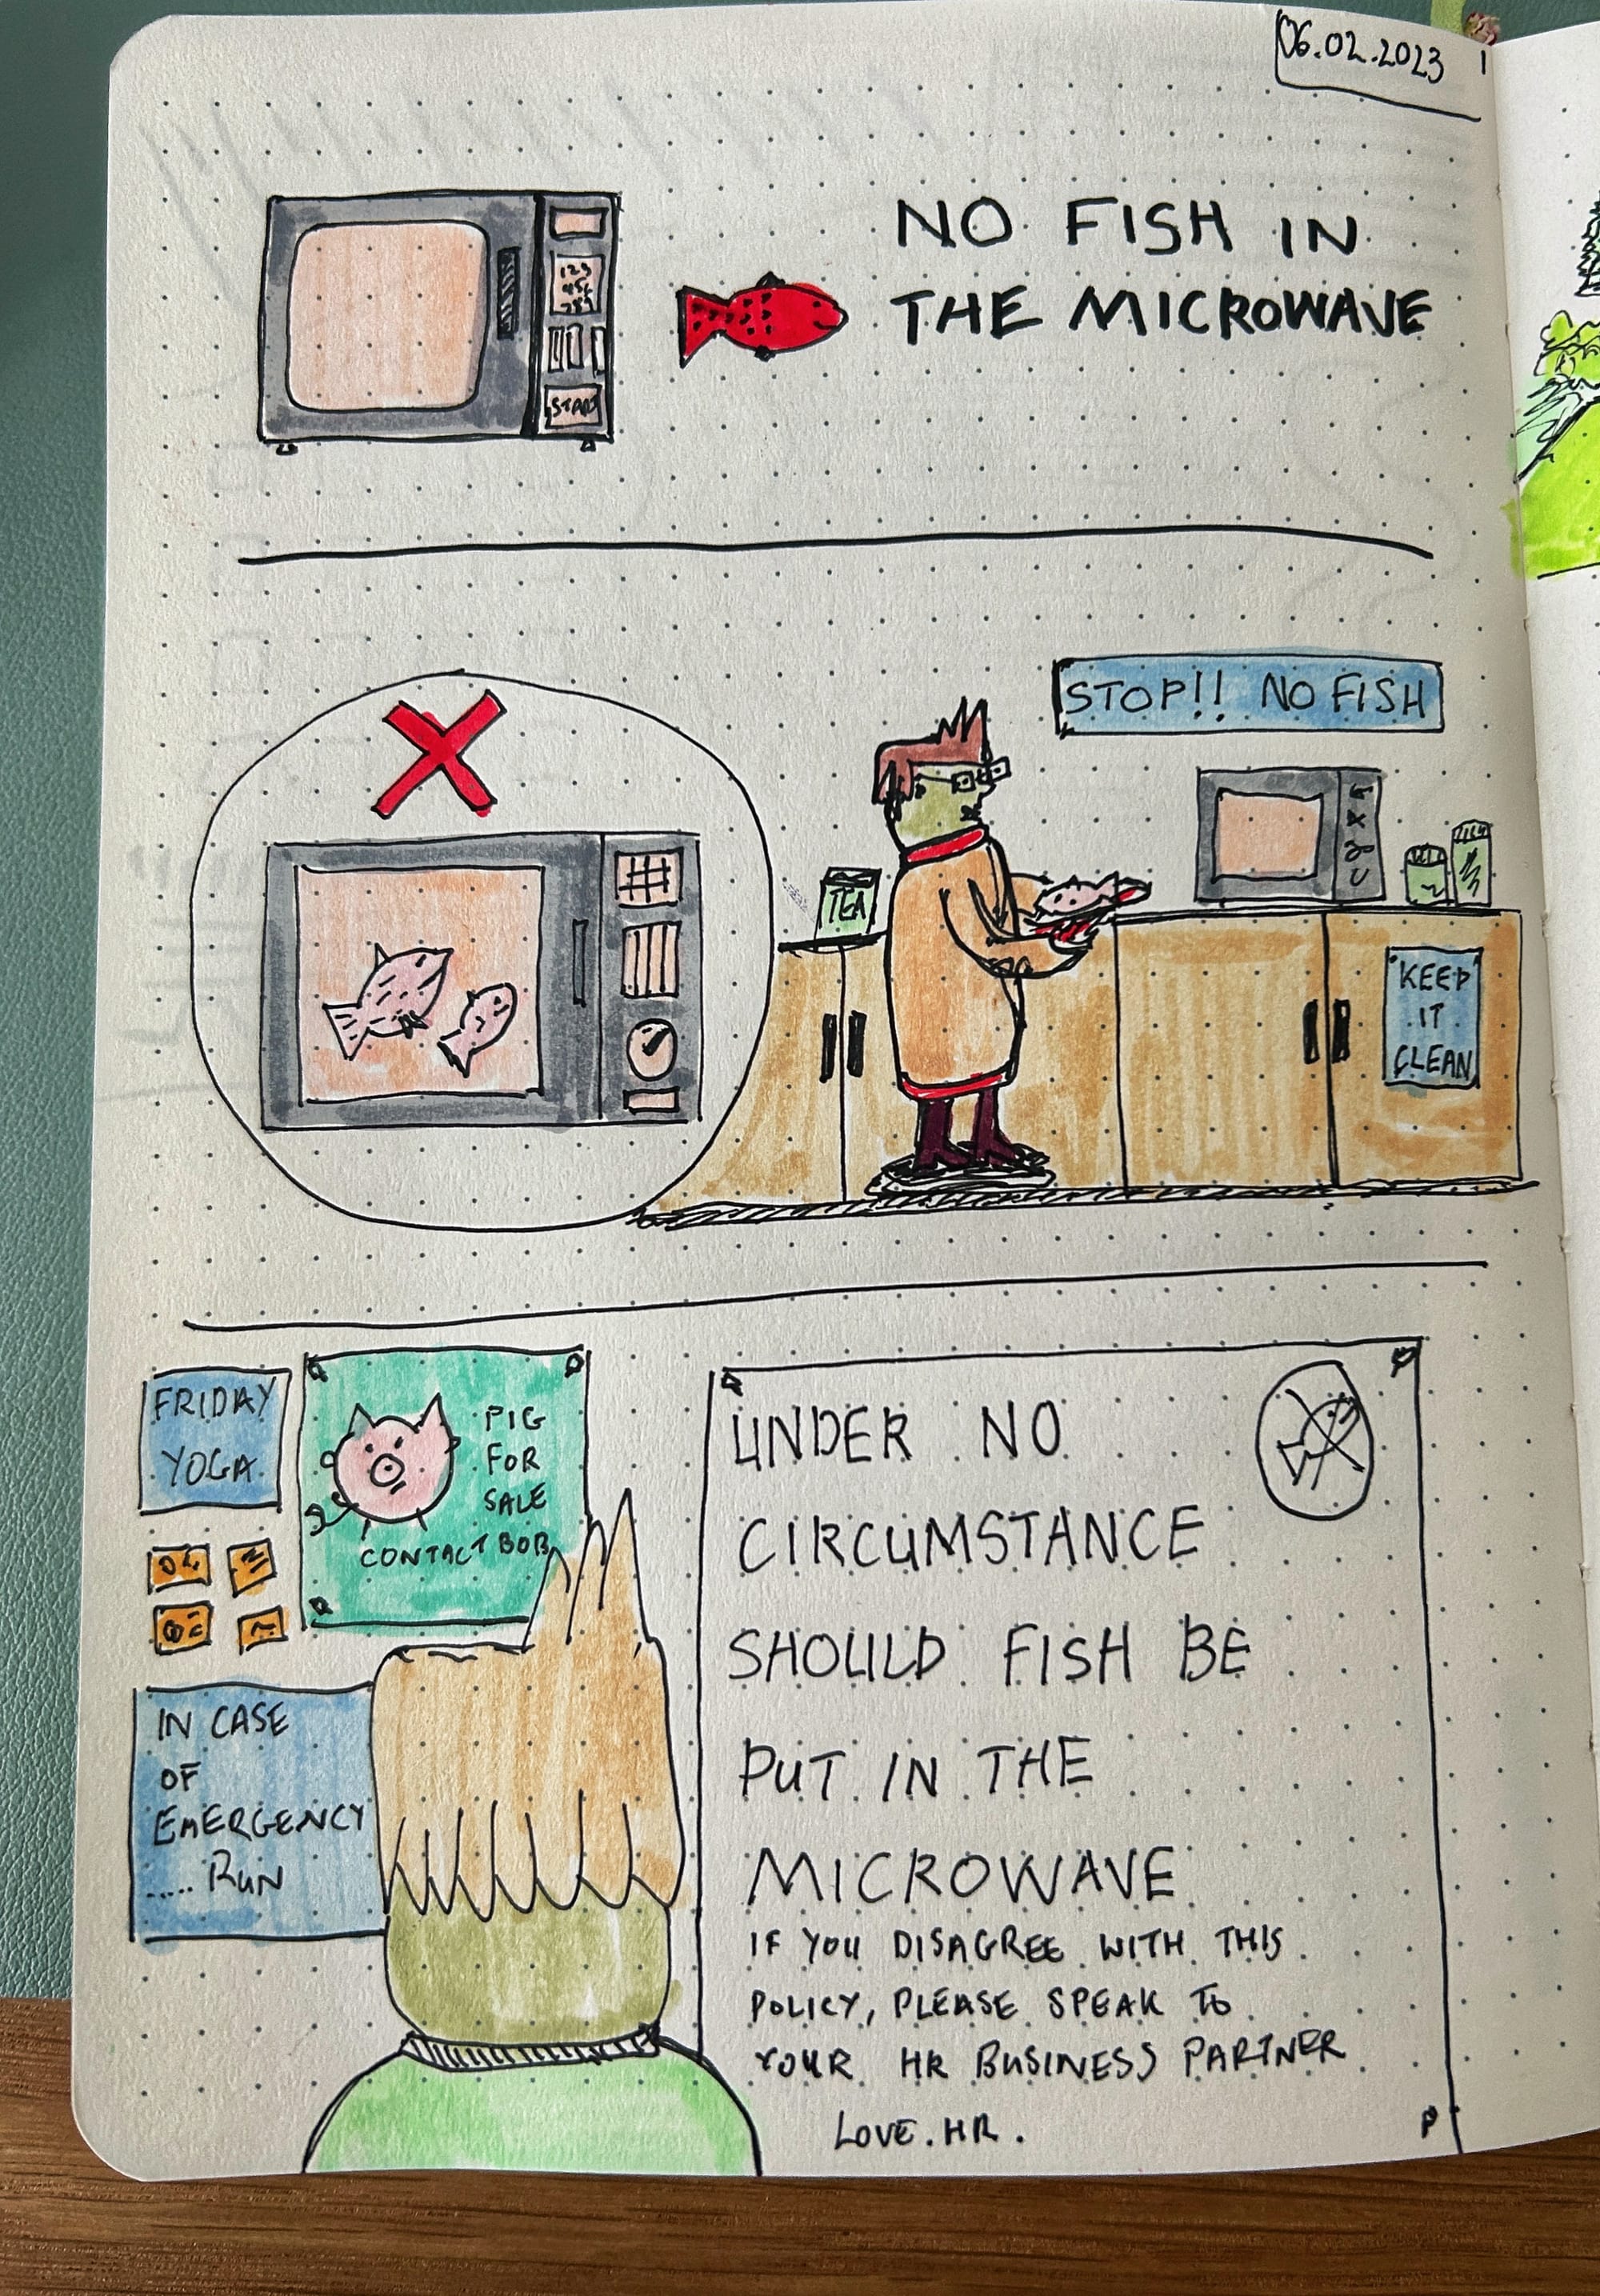 06.02.2023
1
NO FISH IN
THE MICROWAVE
123
456
789
START
STOP!! NO FISH
TEA
KEEP
IT
CLEAN
FRIDAY
YOGA
PIG
FOR
SALE
CONTACT BOB
IN CASE
OF
EMERGENCY
..... RUN
UNDER NO
CIRCUMSTANCE
SHOULD FISH BE
PUT IN THE
MICROWAVE
IF YOU DISAGREE WITH THIS
POLICY, PLEASE SPEAK TO
YOUR HR BUSINESS PARTNER
LOVE. HR.